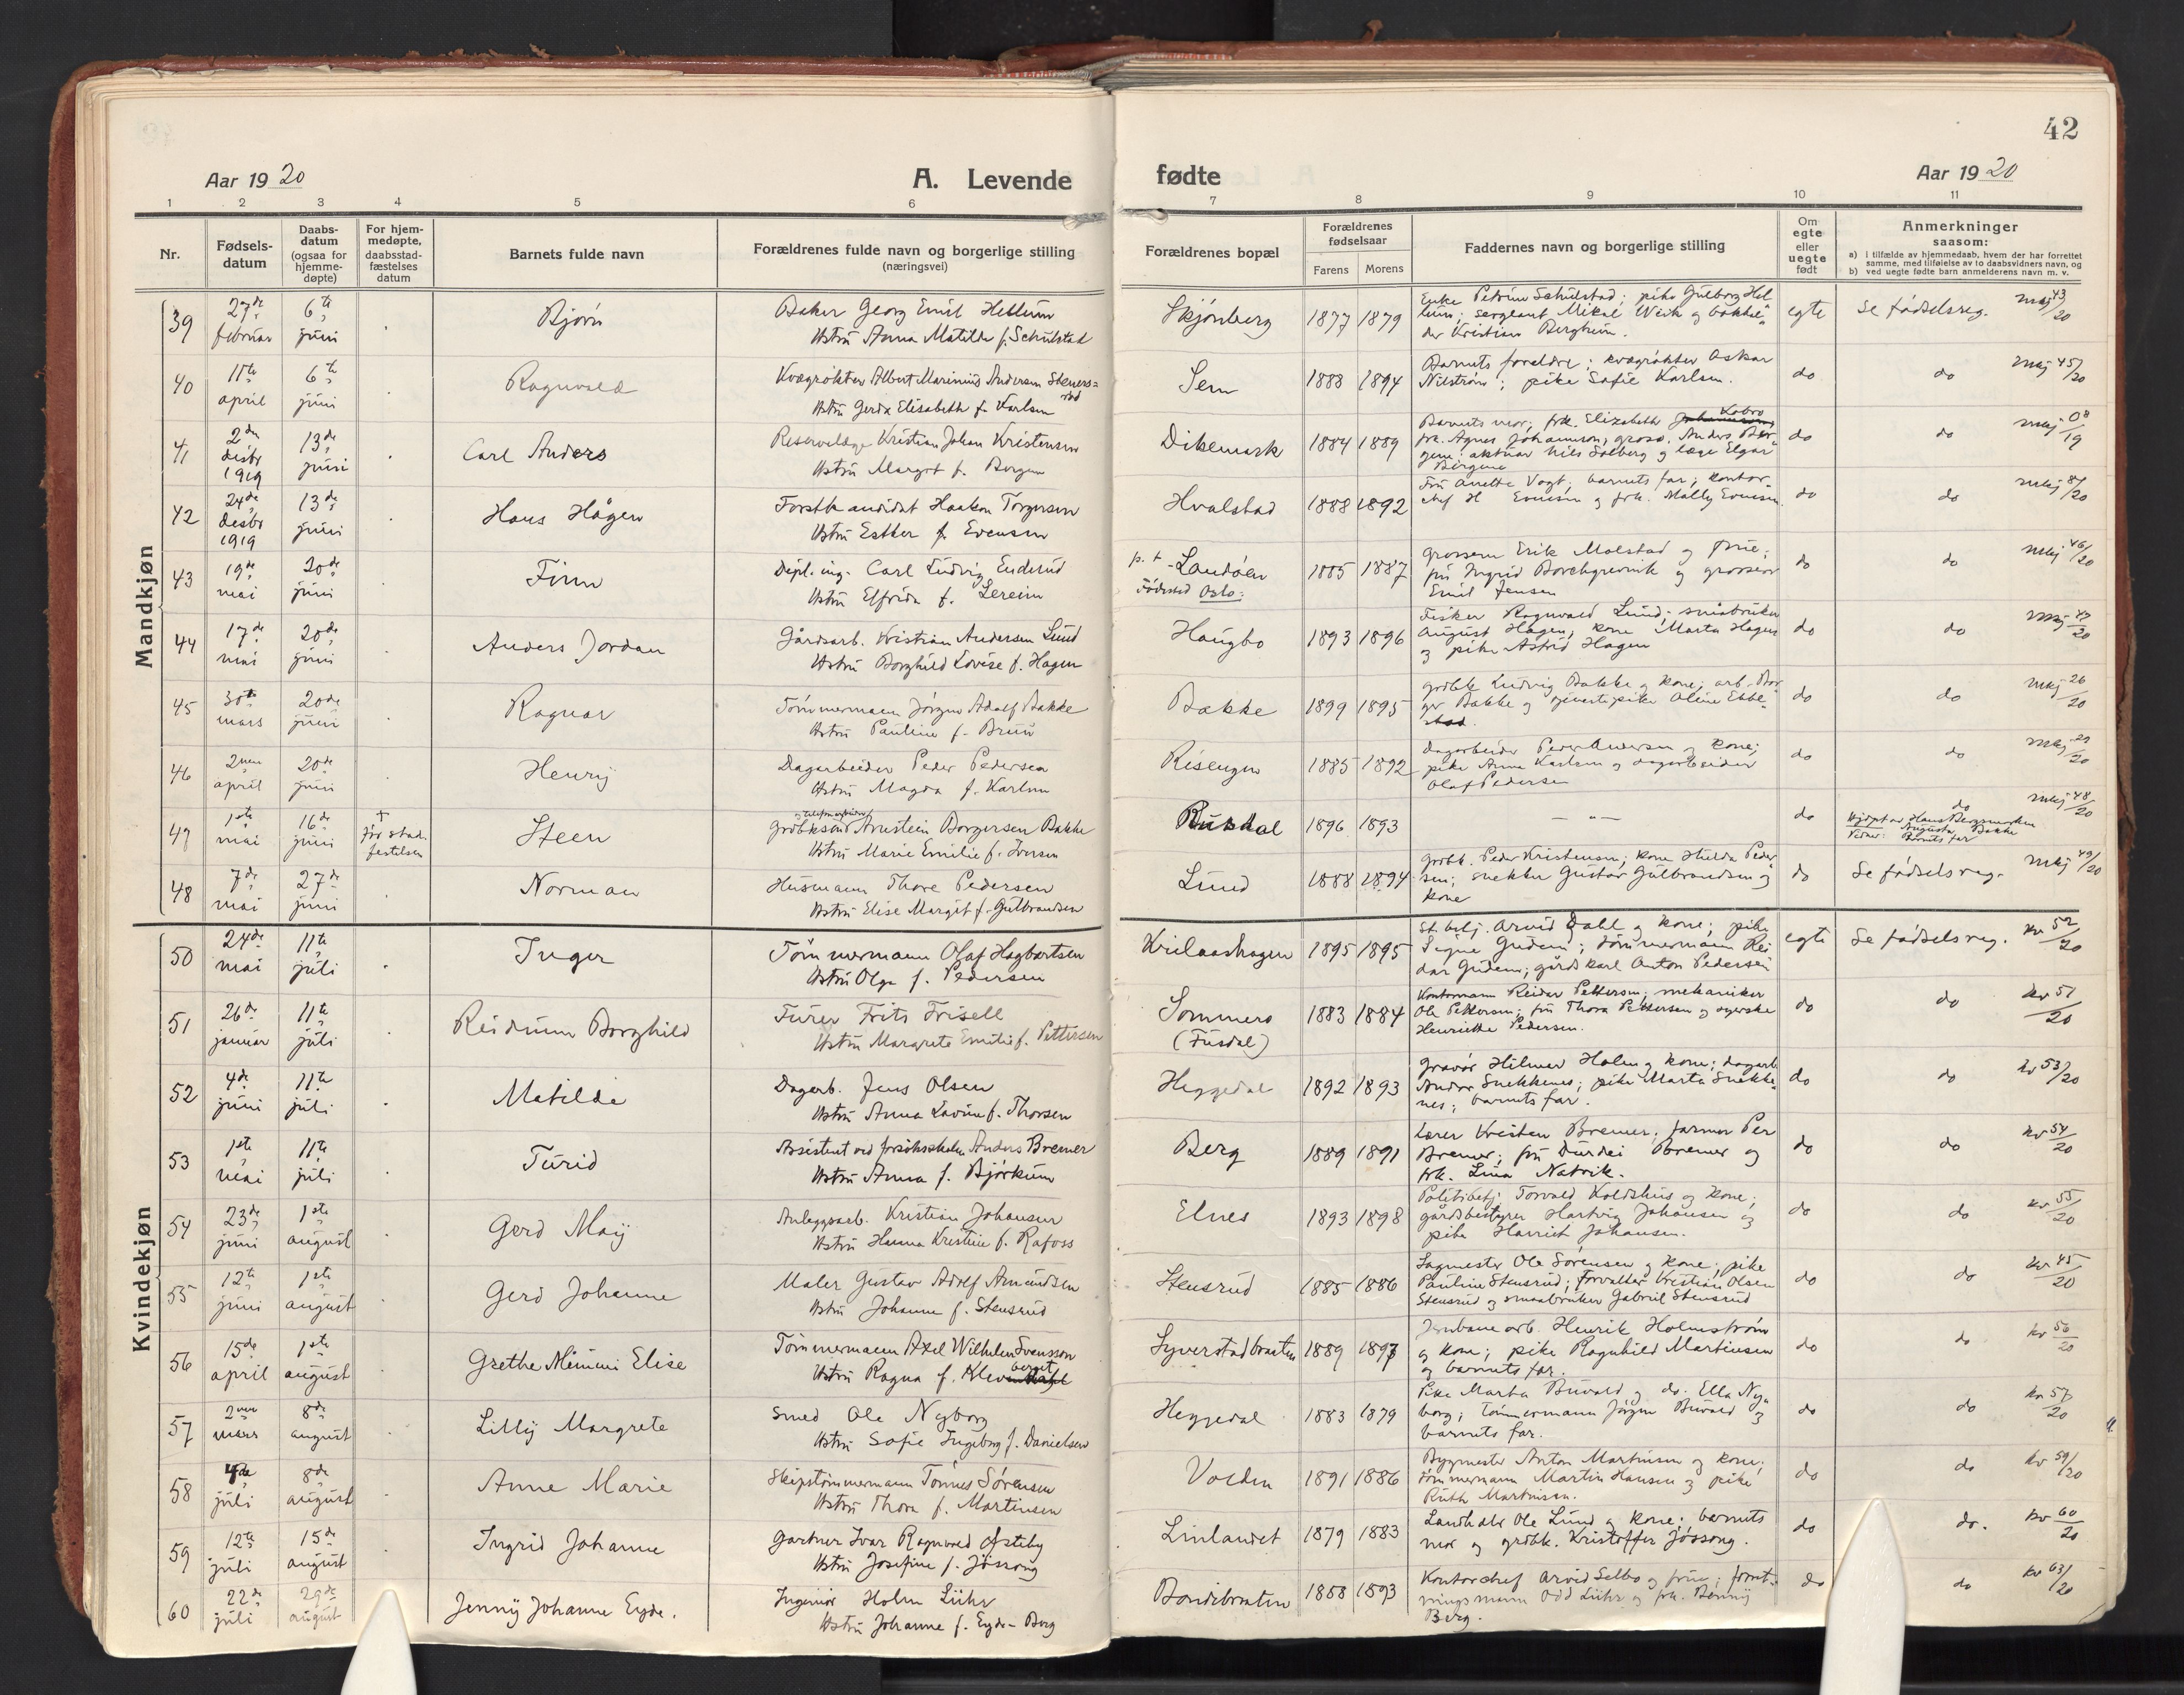 42
Aar 1920
A. Levende
fødte
Aar 1920
1 2 3 4 5 6 7 8 9 10 11
Nr.
Fødsels-
datum
Daabs-
datum
(ogsaa for
hjemme-
døpte)
For hjem-
medøpte,
daabsstad-
fæstelses
datum
Barnets fulde navn
Forældrenes fulde navn og borgerlige stilling
(næringsvei)
Forældrenes bopæl
Forældrenes
fødselsaar
Farens Morens
Faddernes navn og borgerlige stilling
Om
egte
eller
uegte
født
Anmerkninger
saasom:
a) i tilfælde av hjemmedaab, hvem der har forrettet
samme, med tilføielse av to daabsvidners navn, og
b) ved uegte fødte barn anmelderens navn m. v.
Mandkjøn
39 27de februar 6te juni Bjørn
Baker Georg Emil Hellum
Hstru Anna Matilde f. Schulstad
Skjønberg 1877 1879
Enke Petrine Schulstad; pike Gulborg Hel-
lum; sergeant Mikal Wiik og bokhol-
der Kristian Bergheim.
egte Se fødselsreg. mkj 43/20
40 11te april 6te juni Ragnvald
Kvægrøkter Albert Marinius Andersen Steners-
rud
Hstru Gerda Elisabeth f. Karlsen
Sem 1888 1894
Barnets foreldre; kvægrøkter Oskar
Nilstrøm; pike Sofie Karlsen.
do do mkj 45/20
41 2den desbr 1919 13de juni Carl Anders
Reservelæge Kristian Johan Kristensen
Hstru Margit f. Bergene
Dikemark 1884 1889
Barnets mor; frk. Elizabeth
frk. Agnes Johannson; gross. Anders Ber-
gene, aktuar Nils Solberg og læge Elgar
Bergene
do do mkj /19
42 24de desbr 1919 13de juni Hans Hågen
Forstkandidat Haakon Torgersen
Hstru Esther f. Evensen
Hvalstad 1888 1892
Fru Anette Vogt; barnets far; kontor-
chef H Evensen og frk. Molly Evensen.
do do mkj /20
43 19de mai 20de juni Finn
Dipl. ing. Carl Ludvig Enderud
Hstru Elfrida f. Lereim
p. t. Landøen
Fødested Oslo: 1885 1887
Grosserer Erik Molstad og frue;
fru Ingrid Borchgrevink og grosserer
Emil Jensen
do do mkj 46/20
44 17de mai 20de juni Anders Jordan
Gårdsarb. Kristian Andersen Lund
Hstru Borghild Lovise f. Hagen
Haugbo 1893 1896
Fisker Ragnvald Lund; småbruker
August Hagen, kone Marta Hagen
og pike Astrid Hagen
do do mkj 47/20
45 30te mars 20de juni Ragnar
Tømmermann Jørgen Adolf Bakke
Hstru Pauline f. Bruu
Bakke 1899 1895
Grdbk Ludvig Bakke og kone; arb. Bør-
ge Bakke og tjenestepike Oline Ebbe-
stad.
do do mkj 26/20
46 2nen april 20de juni Henry
Dagarbeider Peder Pedersen
Hstru Magda f. Karlsen
Risengen 1885 1892
Dagarbeider Peder Andersen og kone;
pike Anna Karlsen og dagarbeider
Olaf Pedersen
do do mkj 29/20
47 1ste mai 16de juni † før stad-
festelsen Steen
og telefonarbeider
Grdbksønn Arnstein Borgersen Bakke
Hstru Marie Emilie f. Iversen
Rustdal 1896 1893
— „ —
do do mkj 48/20
Hjdøpt av Hans Bergsmarken
Vidner: Augusta Bakke
Barnets far
48 7de mai 27de juni Norman
Husmann Thore Pedersen
Hstru Elise Margit f. Gulbrandsen
Lund 1888 1894
Grdbk. Peder Kristensen; kone Hulda Peder-
sen; snekker Gustav Gulbrandsen og
kone
do Se fødselsreg. mkj 49/20
Kvindekjøn
50 24de mai 11te juli Inger
Tømmermann Olaf Hagbartsen
Hstru Olga f. Pedersen
Krielaashagen 1895 1895
St. betj. Arvid Dahl og kone; pike
Signe Gudem; tømmermann Rei-
dar Gudem; gårdskarl Anton Pedersen
egte Se fødselsreg. kv 52/20
51 26de januar 11te juli Reidunn Borghild
Furer Frits Frisell
Hstru Margrete Emilie f. Pettersen
Sommero
(Fusdal) 1883 1884
Kontormann Reidar Pettersen; mekaniker
Ole Pettersen; fru Thora Pettersen og syerske
Henriette Pedersen.
do do kv 51/20
52 4de juni 11te juli Matilde
Dagarb. Jens Olsen
Hstru Anna Lovine f. Thorsen
Heggedal 1892 1893
Gravør Hilmar Holm og kone; dagarb.
Andor Snekkenes; pike Marta Snekke-
nes; barnets far.
do do kv 53/20
53 1ste mai 11te juli Turid
Assistent ved forsøksskolen Anders Bremer
Hstru Anna f. Bjørkum
Berg 1889 1891
Lærer Kristen Bremer; farmer Per
Bremer; fru Durdei Bremer og
frk. Lina Natvik.
do do kv 54/20
54 23de juni 1ste august Gerd Maÿ
Anleggsarb. Kristian Johansen
Hstru Hanna Kristine f. Rafoss
Elnes 1893 1898
Politibetj. Torvald Koldshus og kone;
gårdsbestyrer Hartvig Johansen og
pike Harriet Johansen.
do do kv 55/20
55 12te juni 1ste august Gerd Johanne
Maler Gustav Adolf Amundsen
Hstru Johanne f. Stensrud
Stensrud 1885 1886
Sagmester Ole Sørensen og kone; pike
Pauline Stensrud; forvalter Kristian Olsen
Stensrud og smaabruker Gabriel Stensrud
do do kv 45/20
56 15de april 1ste august Grethe Mimmi Elise
Tømmermann Axel Wilhelm Svensson
Hstru Ragna f. Klev
Syverstadbraaten 1889 1897
Jernbanearb. Henrik Holmstrøm
og kone; pike Ragnhild Martinsen
og barnets far.
do do kv 56/20
57 2nen mars 8de august Lilly Margrete
Smed Ole Nyborg
Hstru Sofie Ingeborg f. Danielsen
Heggedal 1883 1879
Pike Marta Buvald og do. Ella Ny-
borg; tømmermann Jørgen Buvald og
barnets far.
do do kv 57/20
58 4de juli 8de august Anne Marie
Skipstømmermann Tønnes Sørensen
Hstru Thora f. Martinsen
Volden 1891 1886
Bygmester Anton Martinsen og kone;
tømmermann Martin Hansen og pike
Ruth Martinsen.
do do kv 59/20
59 12te juli 15de august Ingrid Johanne
Gartner Ivar Ragnvald Østeby
Hstru Josefine f. Jøssong
Linlandet 1879 1883
Landhdlr Ole Lund og kone; barnets
mor og grdbk. Kristoffer Jøssong.
do do. kv 60/20
60 22de juli 29de august Jenny Johanne Eyde.
Ingeniør Holm Lühr
Hstru Johanne f. Eyde-Berg
Bondibraaten 1888 1893
Kontorchef Arvid Selbo og frue; forret-
ningsmann Odd Lühr og frk. Benny
Berg.
do do kv 63/20